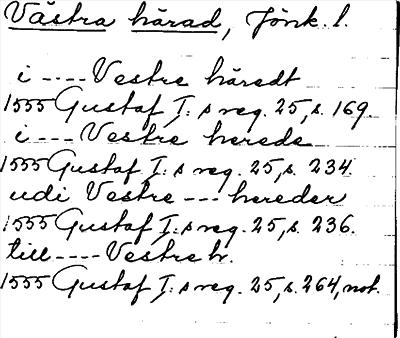 Västra härad, Jönk. l.
i ---- Vestre häredt
1555 Gustaf I:s reg. 25, s. 169.
i ---- Vestre herede
1555 Gustaf I:s reg. 25, s. 234.
udi Vestre --- hereder
1555 Gustaf I:s reg. 25, s. 236.
till ---- Vestre h.
1555 Gustaf I:s reg. 25, s. 264, not.